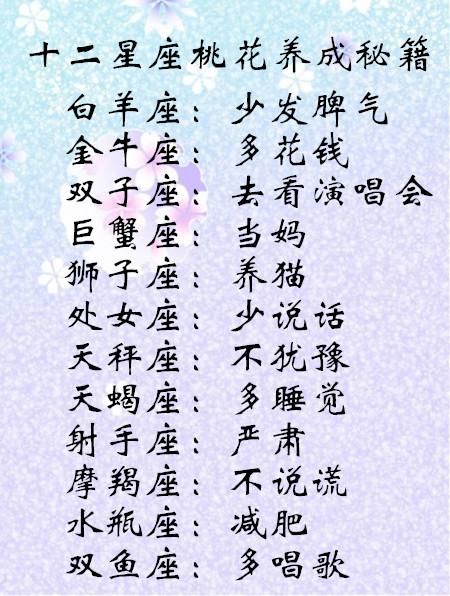 十二星座桃花养成秘籍
白羊座：少发脾气
金牛座：多花钱
双子座：去看演唱会
巨蟹座：当妈
狮子座：养猫
处女座：少说话
天秤座：不犹豫
天蝎座：多睡觉
射手座：严肃
摩羯座：不说谎
水瓶座：减肥
双鱼座：多唱歌